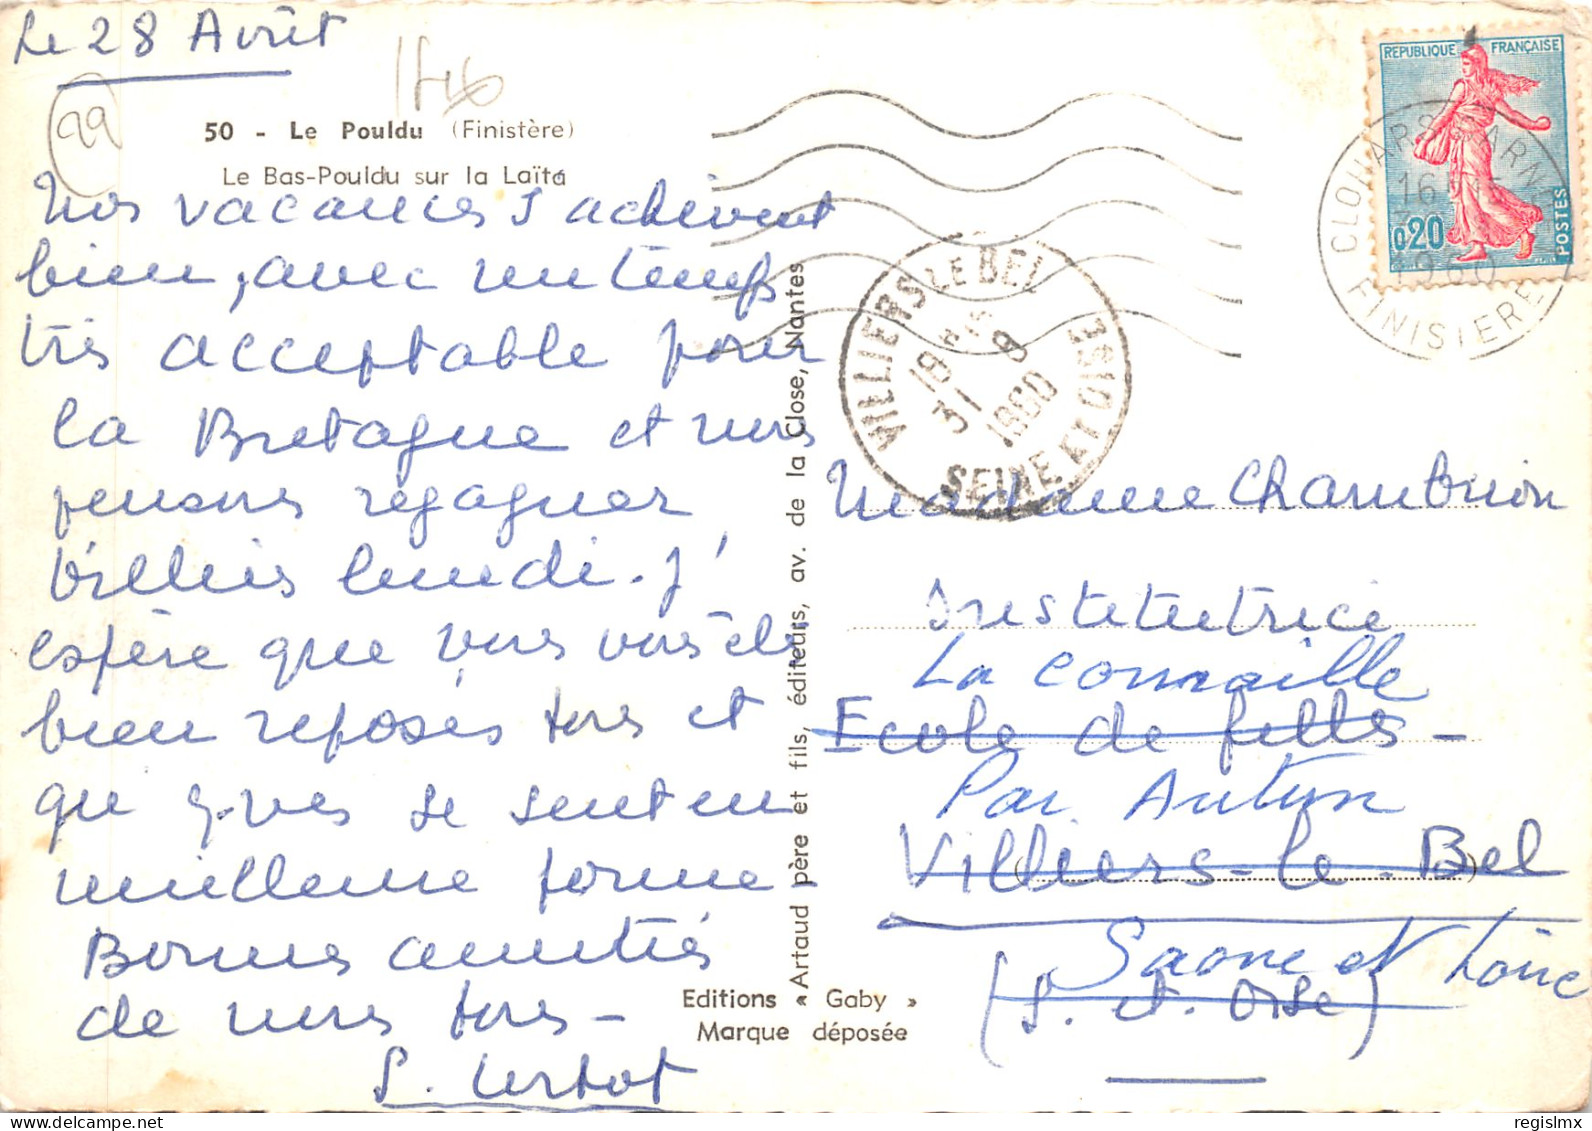 Le 28 Août
1F46
29
50 - Le Pouldu (Finistère)
Le Bas-Pouldu sur la Laïta
Nos vacances s'achèvent
bien, avec un temps
très acceptable pour
la Bretagne et nous
pensons regagner
Villiers lundi. J'
espère que vous vous êtes
bien reposés tous et
que g-mes se sentent en
meilleure forme -
Bonnes amitiés
de nous tous -
REPUBLIQUE FRANÇAISE
0,20
POSTES
CLOHARS CARN
16
1960
FINISTERE
VILLIERS LE BEL
18 H 15
31 - 8
1960
SEINE ET OISE
Madame Chambrion
Institutrice
La Comaille
Ecole de filles -
Par Autun
Villiers-le-Bel
Saone et Loire
(S. et Oise)
"Artaud père et fils, éditeurs, av. de la Close, Nantes
Editions « Gaby »
Marque déposée
delcampe.net
regislmx